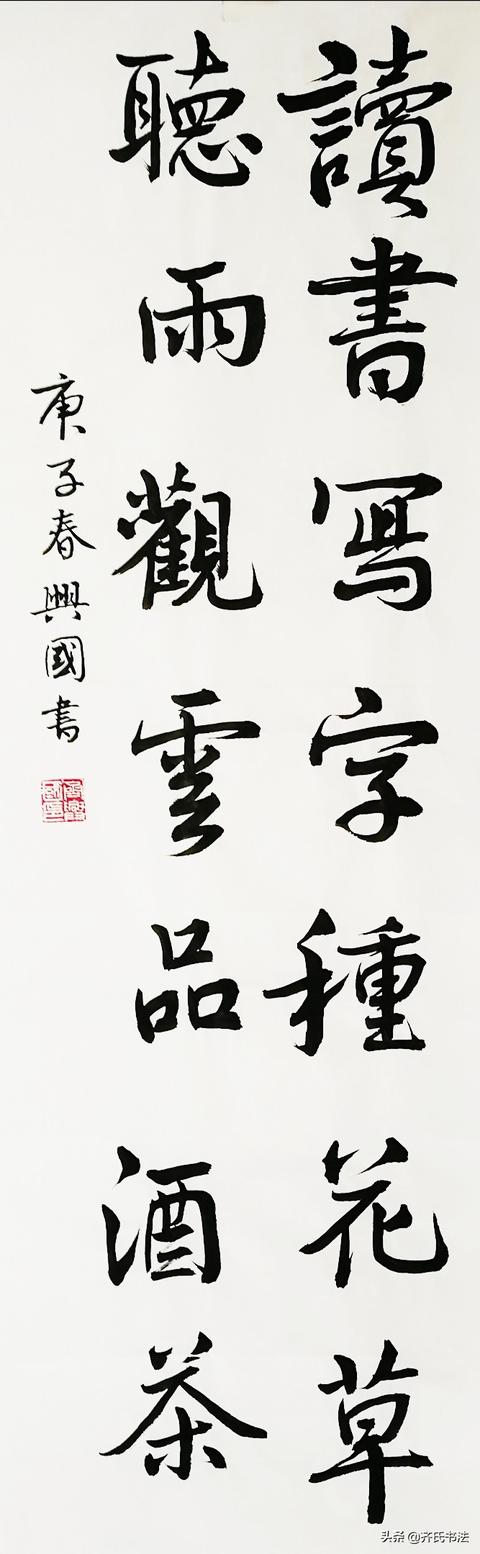 讀書寫字種花草
聽雨觀雲品酒茶
庚子春興國書
头条 @齐氏书法